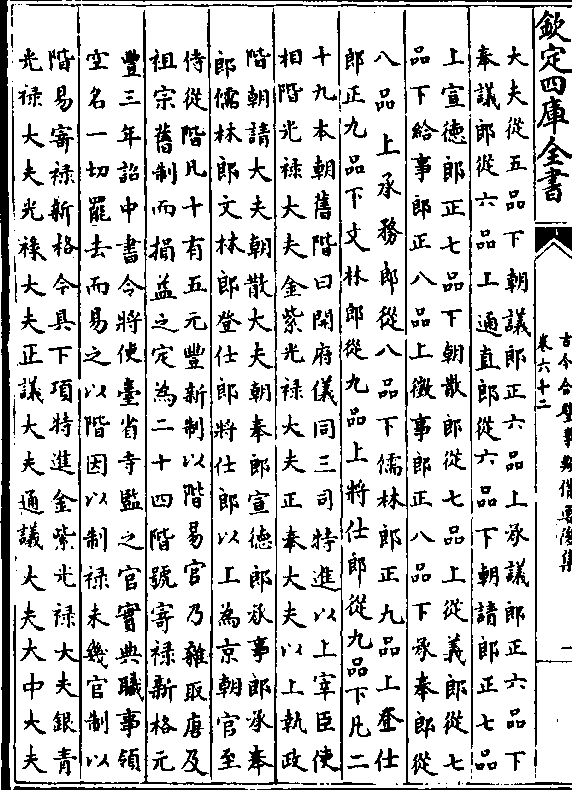 欽定四庫全書
古今合璧事類備要後集
卷六十二
一
大夫從五品下朝議郎正六品上承議郎正六品下
奉議郎從六品上通直郎從六品下朝請郎正七品
上宣德郎正七品下朝散郎從七品上從義郎從七
品下給事郎正八品上徴事郎正八品下承奉郎從
八品上承務郎從八品下儒林郎正九品上登仕
郎正九品下文林郎從九品上將仕郎從九品下凡二
十九本朝舊階曰開府儀同三司特進以上宰臣使
相階光禄大夫金紫光禄大夫正奉大夫以上執政
階朝請大夫朝散大夫朝奉郎宣德郎承事郎承奉
郎儒林郎文林郎登仕郎將仕郎以上為京朝官至
侍從階凡十有五元豐新制以階易官乃雜取唐及
祖宗舊制而損益之定為二十四階號寄禄新格元
豐三年詔中書令將使臺省寺監之官實典職事領
空名一切罷去而易之以階因以制禄未幾官制以
階易寄禄新格今具下項特進金紫光禄大夫銀青
光禄大夫光禄大夫正議大夫通議大夫大中大夫